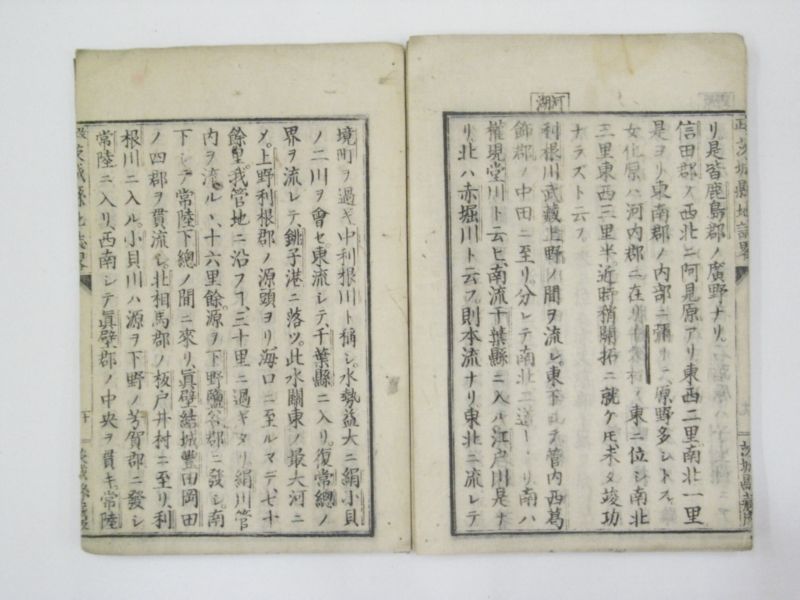 河湖
リ是皆鹿島郡ノ廣野ナリ
信田郡ノ西北ニ阿見原アリ東西二里南北一里
是ヨリ東南郡ノ内部ニ彌リ原野多シトス
女化原ハ河内郡ニ在リ東ニ位シ南北
三里東西三里半近時稍開拓ニ就ケ𪜈未タ竣功
ナラズト云フ
利根川武藏上野ノ間ヲ流レ東下シテ管内西葛
飾郡ノ中田ニ至リ分レテ南北二道トナリ南ハ
權現堂川ト云ヒ南流千葉縣ニ入ル江戸川是ナ
リ北ハ赤堀川ト云フ則本流ナリ東北ニ流レテ
境町ヲ過ギ中利根川ト稱シ水勢益大ニ絹小貝
ノ二川ヲ會セ東流シテ千葉縣ニ入リ復常總ノ
界ヲ流レテ銚子港ニ落ツ此水關東ノ最大河ニ
メ上野利根郡ノ源頭ヨリ海口ニ至ルマデ七十
餘里我管地ニ沿フヿ三十里ニ過ギタリ絹川管
内ヲ流ルヽ十六里餘源ヲ下野鹽谷郡ニ發シ南
下シテ常陸下總ノ間ニ來リ眞壁結城豐田岡田
ノ四郡ヲ貫流シ北相馬郡ノ板戸井村ニ至リ利
根川ニ入ル小貝川ハ源ヲ下野ノ芳賀郡ニ發シ
常陸ニ入リ西南シテ眞壁郡ノ中央ヲ貫キ常陸